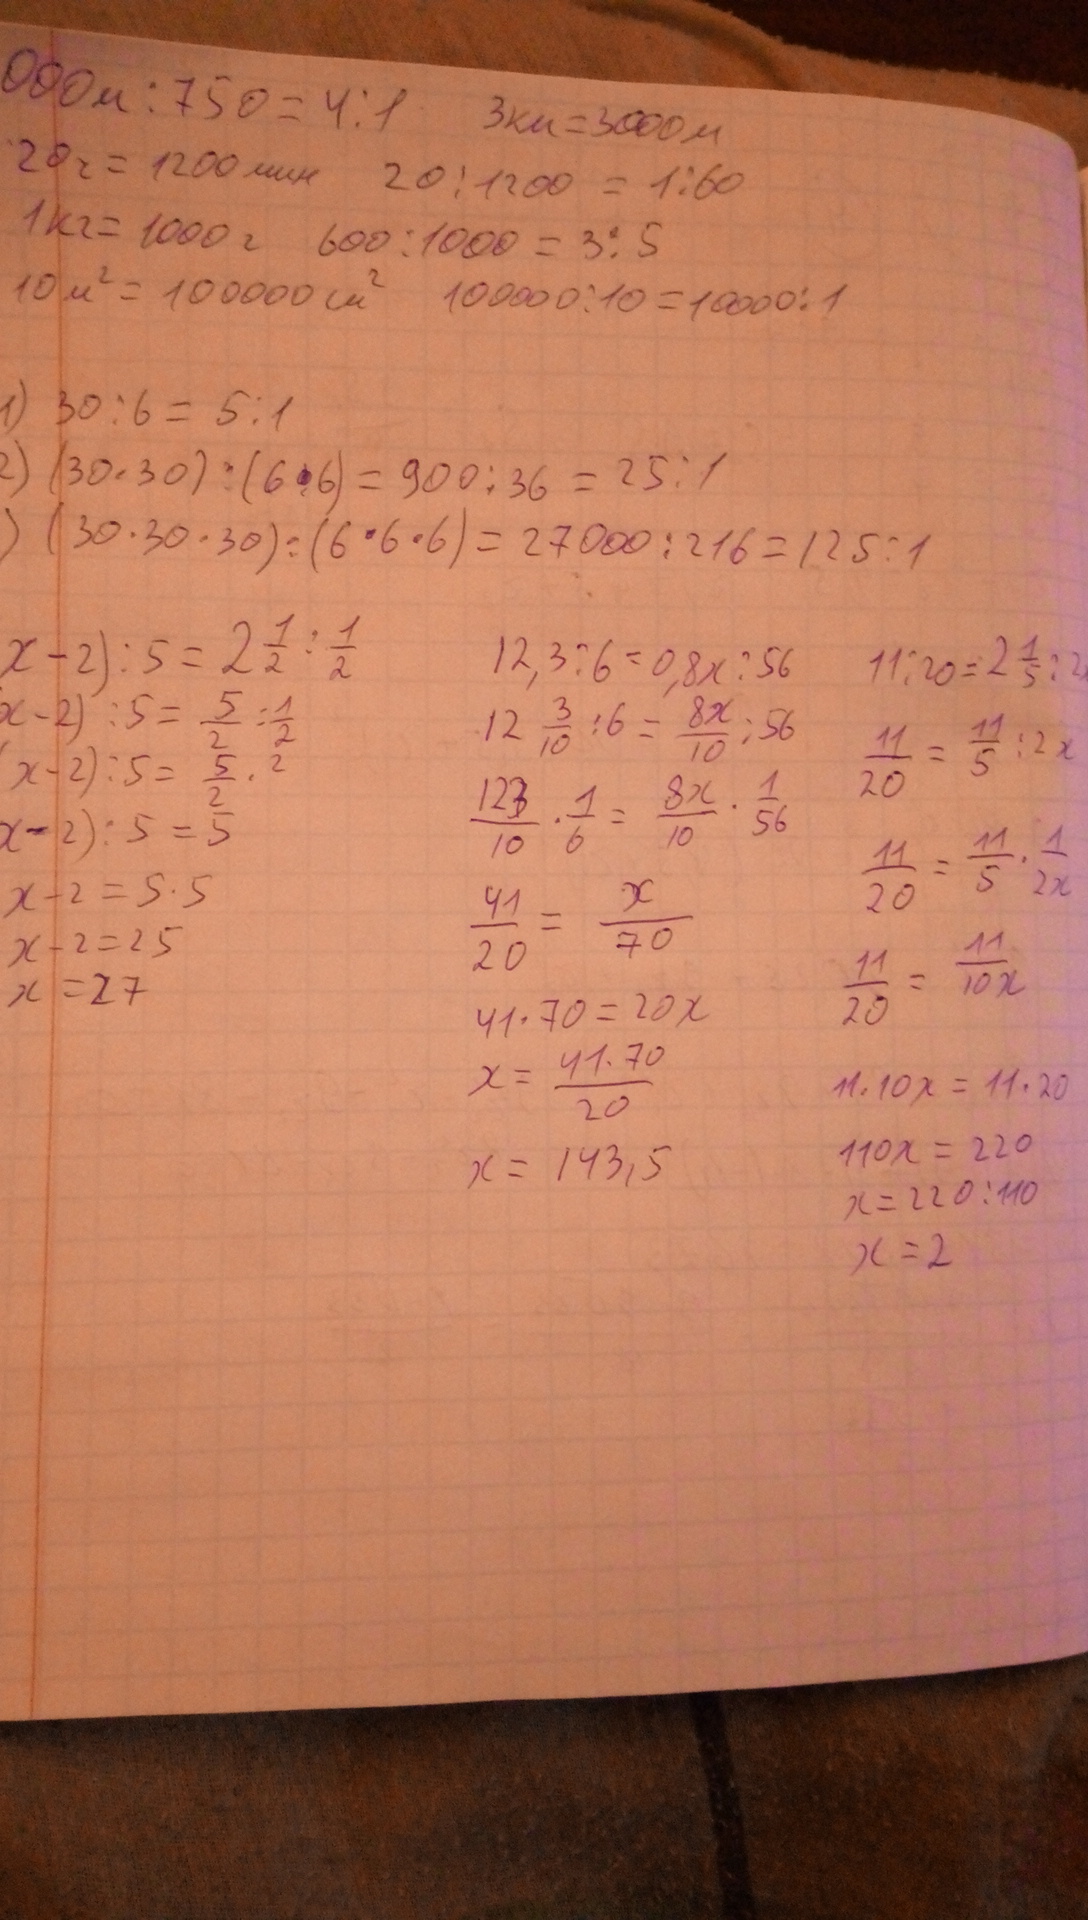 000м : 750 = 4 : 1 3км = 3000м
20ч = 1200 мин 20 : 1200 = 1 : 60
1кг = 1000г 600 : 1000 = 3 : 5
10 м² = 100000 см² 100000 : 10 = 10000 : 1
1) 30 : 6 = 5 : 1
2) (30·30) : (6·6) = 900 : 36 = 25 : 1
) (30·30·30) : (6·6·6) = 27000 : 216 = 125 : 1
x - 2) : 5 = 2 1/2 : 1/2
x - 2) : 5 = 5/2 : 1/2
(x - 2) : 5 = 5/2 · 2
x - 2) : 5 = 5
x - 2 = 5 · 5
x - 2 = 25
x = 27
12,3 : 6 = 0,8x : 56
12 3/10 : 6 = 8x/10 : 56
123/10 · 1/6 = 8x/10 · 1/56
41/20 = x/70
41 · 70 = 20x
x = 41·70/20
x = 143,5
11 : 20 = 2 1/5 : 2x
11/20 = 11/5 : 2x
11/20 = 11/5 · 1/2x
11/20 = 11/10x
11 · 10x = 11 · 20
110x = 220
x = 220 : 110
x = 2